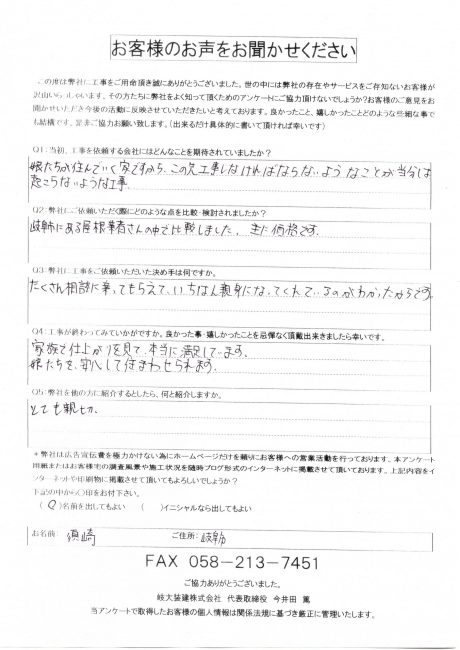 お客様のお声をお聞かせください
この度は弊社に工事をご用命頂き誠にありがとうございました。世の中には弊社の存在やサービスをご存知ないお客様が
沢山いらっしゃいます。その方たちに弊社をよく知って頂くためのアンケートにご協力頂けないでしょうか?お客様のご意見をお
聞かせいただき今後の活動に反映させていきたいと考えております。良かったこと、嬉しかったことどのような些細な事で
も結構です。是非ご協力お願い致します。(出来るだけ具体的に書いて頂ければ幸いです)
Q1:当初、工事を依頼する会社にはどんなことを期待されていましたか?
娘たちが住んでいく家ですから、この先工事しなければならないようなことが当分は
起こらないような工事
Q2:弊社にご依頼いただく際にどのような点を比較・検討されましたか?
岐阜市にある屋根業者さんの中で比較しました。主に価格です。
Q3:弊社に工事をご依頼いただいた決め手は何ですか。
たくさん相談に乗ってもらえて、いちばん親身になってくれているのがわかったからです。
Q4:工事が終わってみていかがですか。良かった事・嬉しかったことを忌憚なく頂戴出来きましたら幸いです。
家族で仕上がりを見て、本当に満足しています。
娘たちを、安心して住まわせられます。
Q5:弊社を他の方に紹介するとしたら、何と紹介しますか。
とても親切。
*弊社は広告宣伝費を極力かけない為にホームページだけを頼りにお客様への営業活動を行っております。本アンケート
用紙またはお客様宅の調査風景や施工状況を随時ブログ形式のインターネットに掲載させて頂いております。上記内容をイ
ンターネットや印刷物に掲載させて頂いてもよろしいでしょうか?
下記の中から○印をお付下さい。
(○)名前を出してもよい ( )イニシャルなら出してもよい
お名前: 須崎 ご住所: 岐阜市
FAX 058-213-7451
ご協力ありがとうございました。
岐大装建株式会社 代表取締役 今井田 篤
当アンケートで取得したお客様の個人情報は関係法規に基づき厳正に管理いたします。